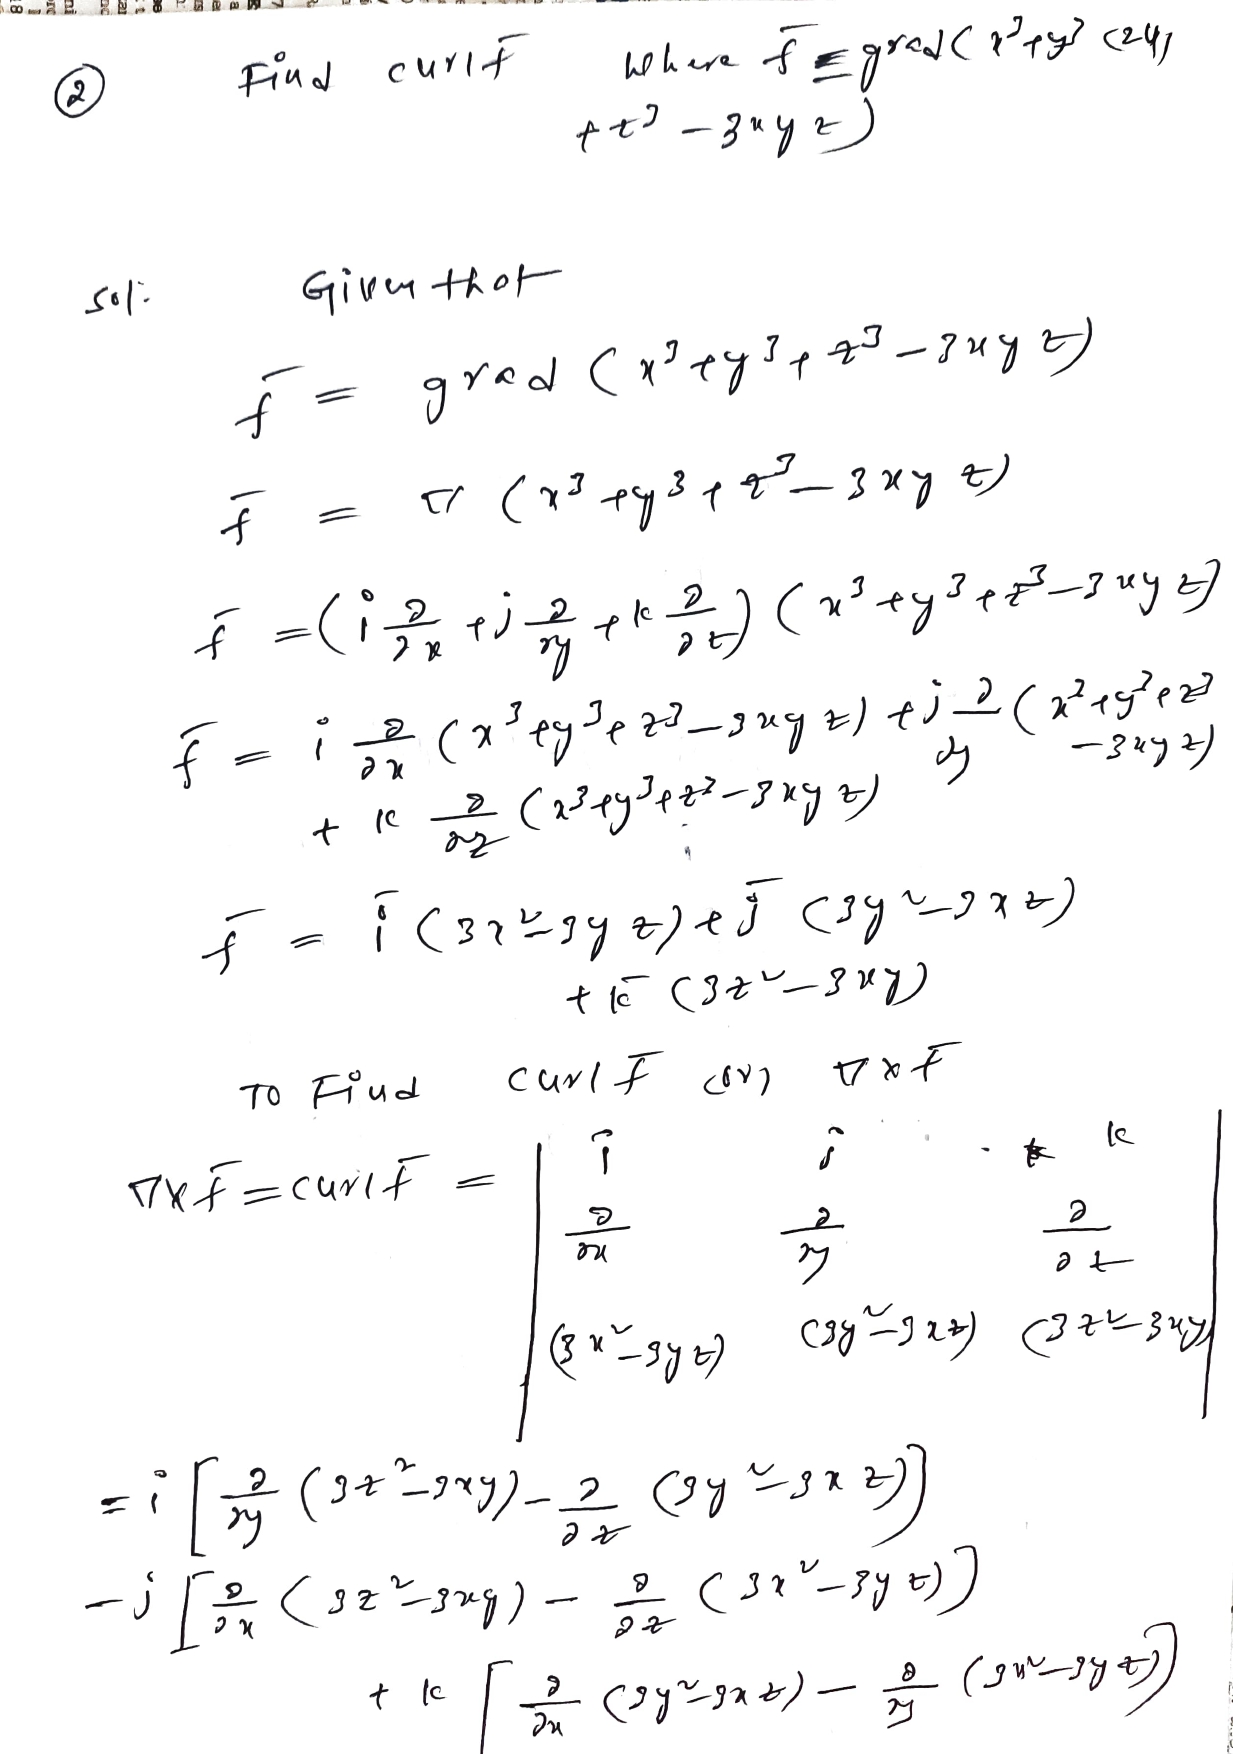 ② Find curl f̄ Where f̄ = grad (x³+y³ (24)
+z³ −3xyz)
Sol: Given that
f̄ = grad (x³+y³+z³−3xyz)
f̄ = ∇ (x³+y³+z³−3xyz)
f̄ = (i ∂/∂x + j ∂/∂y + k ∂/∂z) (x³+y³+z³−3xyz)
f̄ = i ∂/∂x (x³+y³+z³−3xyz) + j ∂/∂y (x³+y³+z³
−3xyz)
+ k ∂/∂z (x³+y³+z³−3xyz)
f̄ = ī (3x²−3yz) + j̄ (3y²−3xz)
+ k̄ (3z²−3xy)
To Find curl f̄ (or) ∇×f̄
∇×f̄ = curl f̄ = | i j k |
| ∂/∂x ∂/∂y ∂/∂z |
| (3x²−3yz) (3y²−3xz) (3z²−3xy) |
= i [∂/∂y (3z²−3xy) − ∂/∂z (3y²−3xz)]
−j [∂/∂x (3z²−3xy) − ∂/∂z (3x²−3yz)]
+ k [∂/∂x (3y²−3xz) − ∂/∂y (3x²−3yz)]